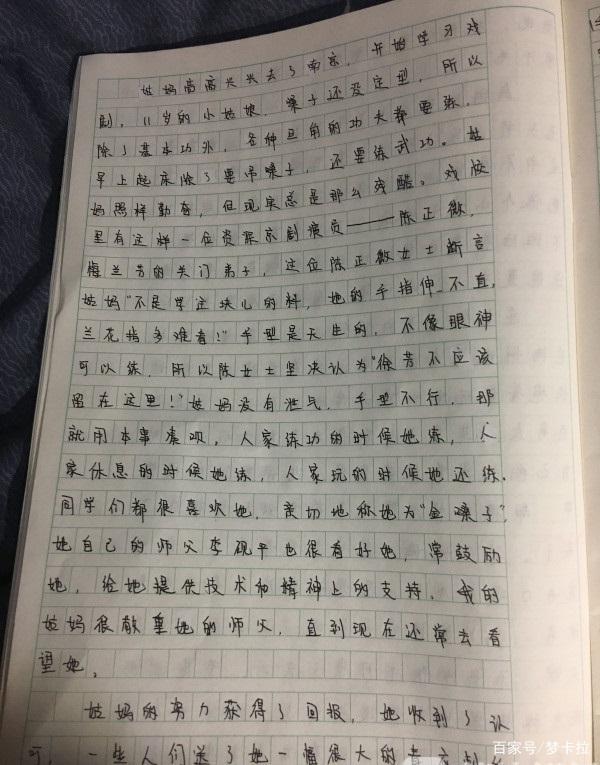 姑妈高高兴兴去了南京，开始学习戏
剧，11岁的小姑娘，嗓子还没定型，所以
除了基本功外，各种旦角的功夫都要练，
早上起床除了要吊嗓子，还要练武功。姑
妈照样勤奋，但现实总是那么残酷。戏校
里有这样一位资深京剧演员——陈正薇，
梅兰芳的关门弟子，这位陈正薇女士断言
姑妈“不是学这块儿的料，她的手指伸不直，
兰花指多难看！”手型是天生的，不像眼神
可以练，所以陈女士坚决认为“徐芳不应该
留在这里！”姑妈没有泄气，手型不行，那
就用本事凑呗，人家练功的时候她练，人
家休息的时候她练，人家玩的时候她还练。
同学们都很喜欢她，亲切地称她为“金嗓子”
她自己的师父李砚平也很看好她，常鼓励
她，给她提供技术和精神上的支持。我的
姑妈很敬重她的师父，直到现在还常去看
望她。
姑妈的努力获得了回报，她收到了认
可，一些人们送了她一幅很大的
百家号/梦卡拉